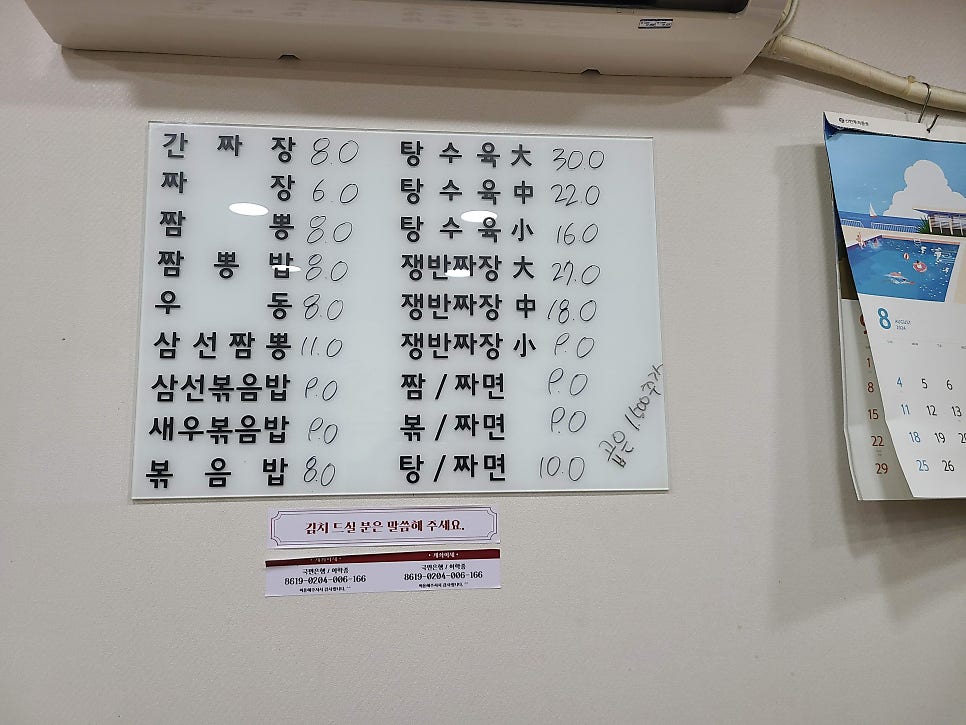 간 짜 장 8.0
짜 장 6.0
짬 뽕 8.0
짬 뽕 밥 8.0
우 동 8.0
삼 선 짬 뽕 11.0
삼선볶음밥 9.0
새우볶음밥 9.0
볶 음 밥 8.0
탕 수 육 大 30.0
탕 수 육 中 22.0
탕 수 육 小 16.0
쟁반짜장 大 27.0
쟁반짜장 中 18.0
쟁반짜장 小 9.0
짬 / 짜면 9.0
볶 / 짜면 9.0
탕 / 짜면 10.0
곱은 1.500추가
김치 드실 분은 말씀해 주세요.
• 계좌이체 •
국민은행 /
8619-0204-006-166
이용해주셔서 감사합니다. ^^
• 계좌이체 •
국민은행 /
8619-0204-006-166
이용해주셔서 감사합니다. ^^
8 AUGUST
2024
4 5 6
11 12 13
18 19
25 26
1
8
15
22
29